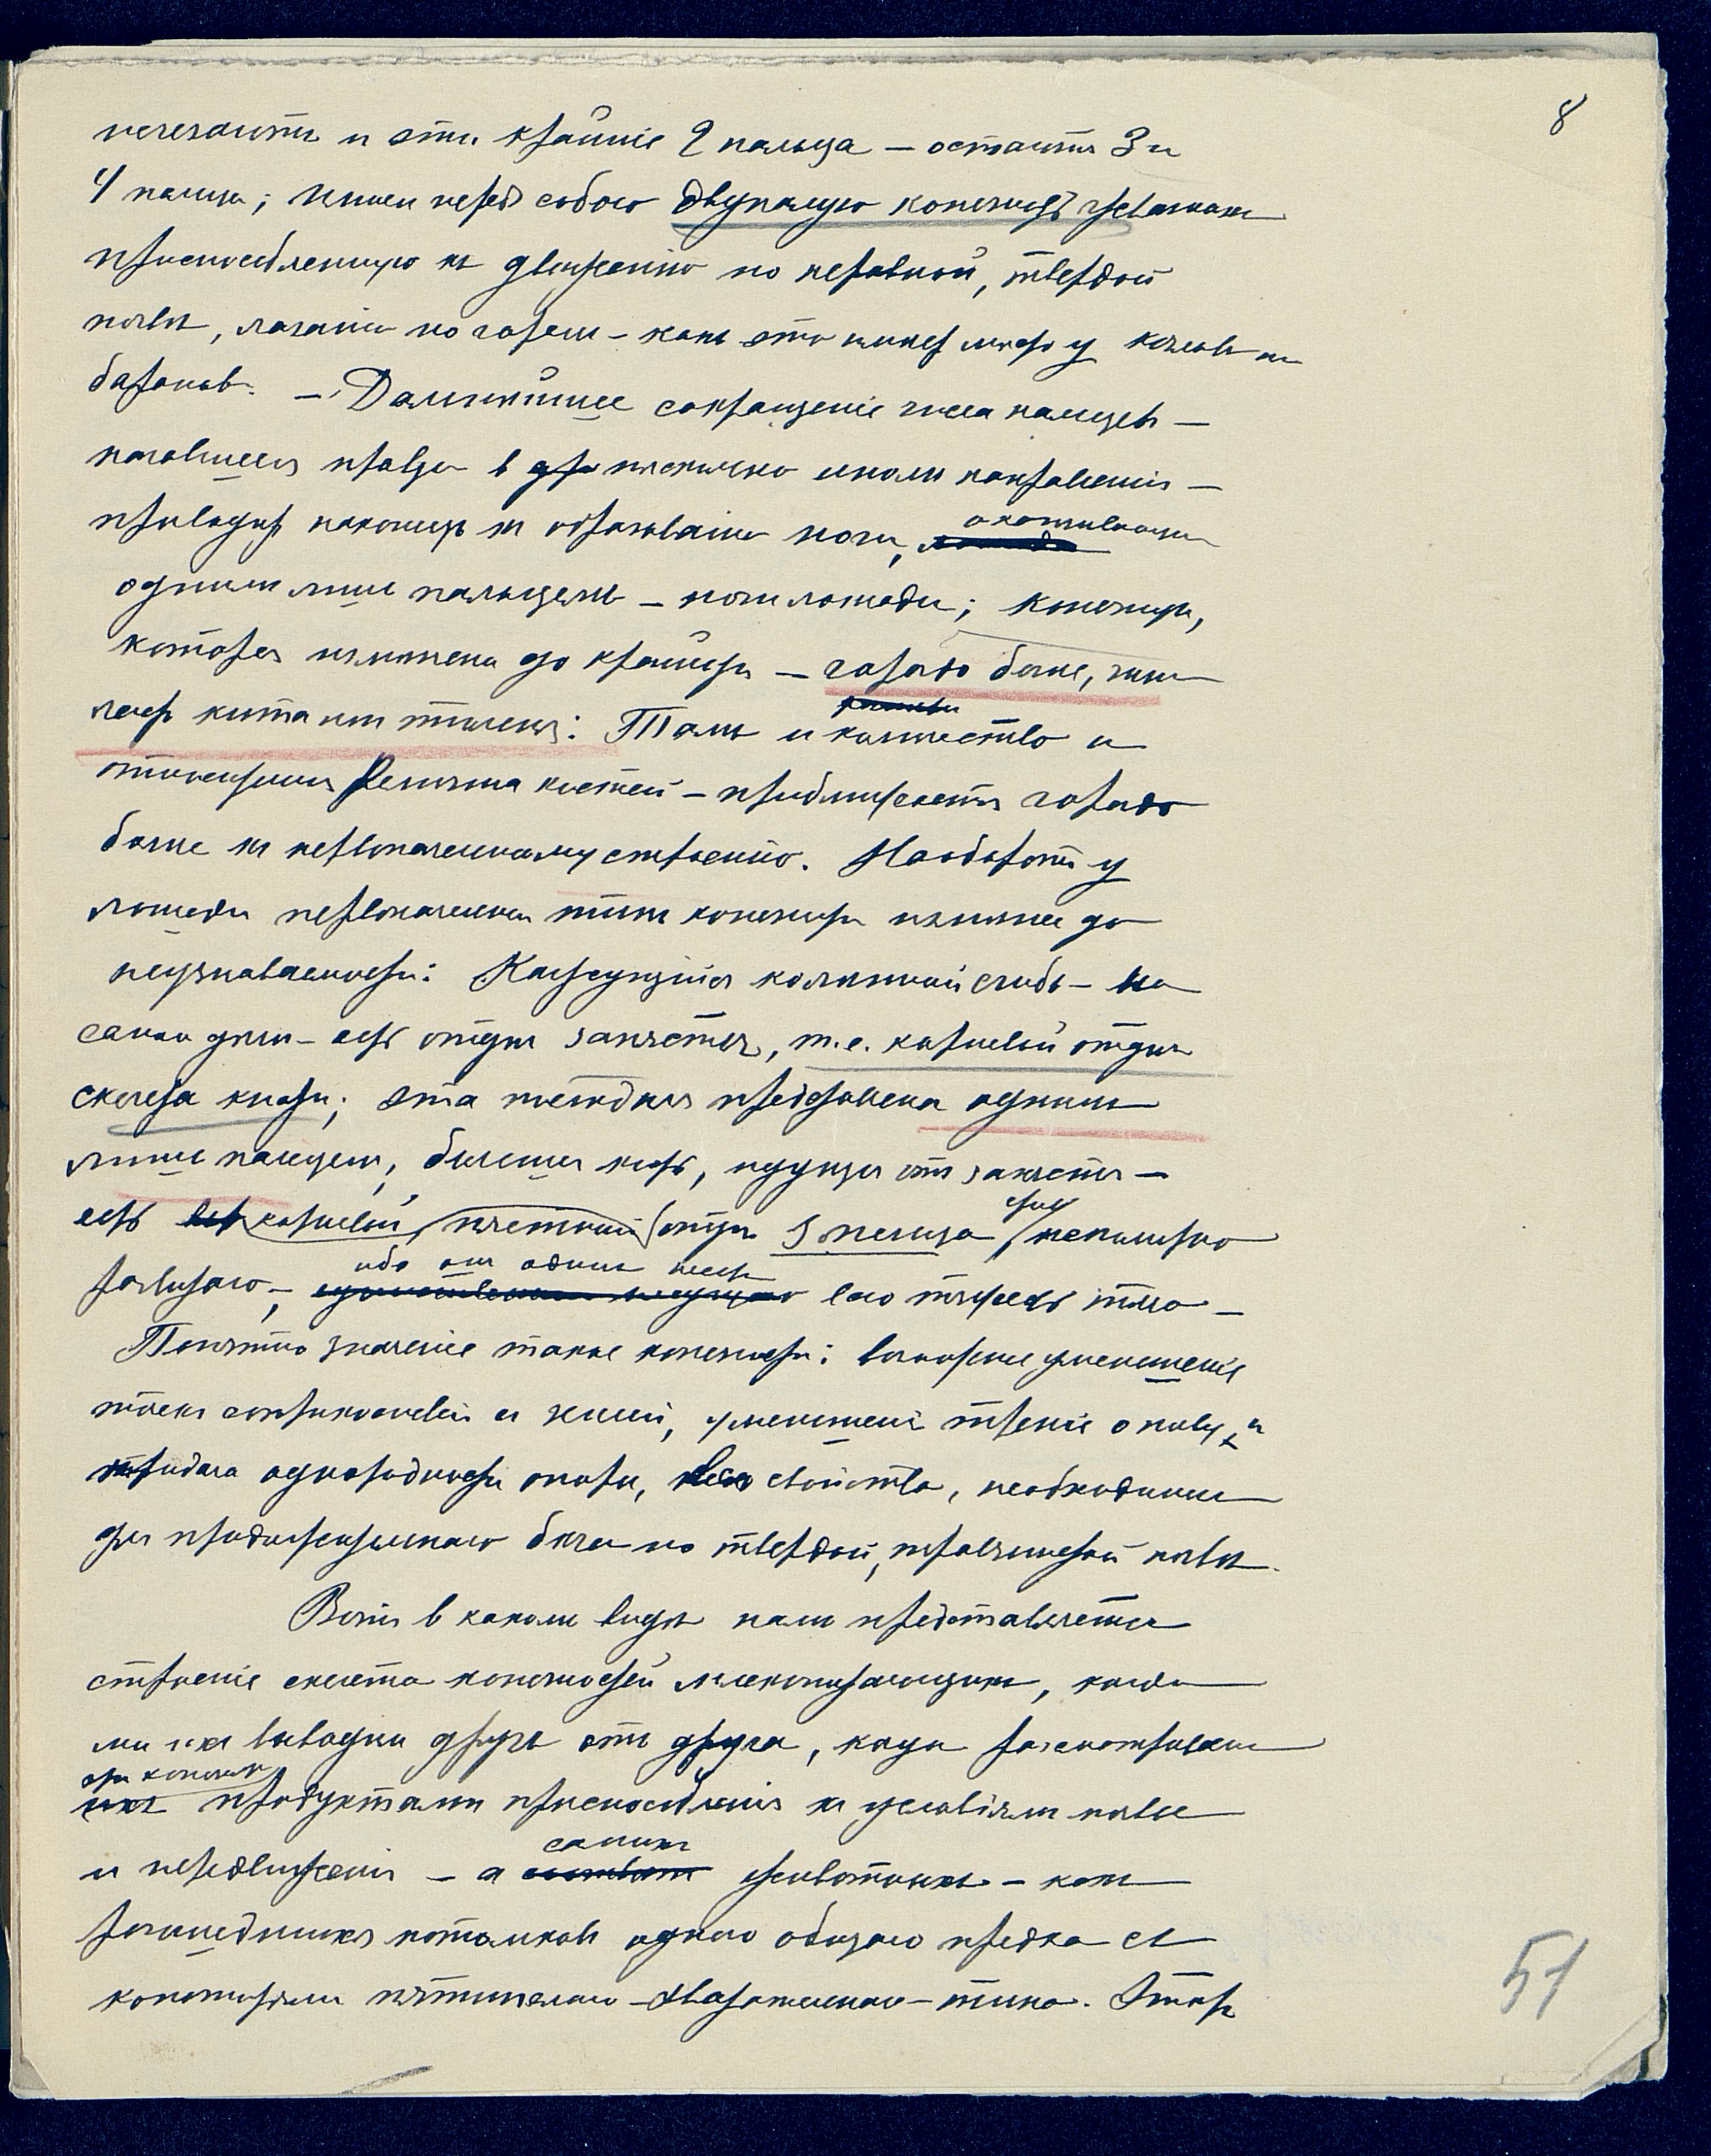 8
исчезают и эти крайние 2 пальца – остаются 3 и
4 пальцы; имеем перед собою двупалую конечность
приспособленную к движению по неровной, твердой
почве, лазанию по горам – как это имеет место у козлов и
баранов. – Дальнейшее сокращение числа пальцев –
начавшееся в несколько ином направлении –
приводит наконец к образованию ноги, оканчивающейся
одним лишь пальцем – ноги лошади; конечность,
которая изменена до крайности – гораздо более, чем
ласт кита или тюленя: Там и количество и
относительная величина костей – приближается гораздо
более к первоначальному строению. Наоборот у
лошади первоначальный тип конечности изменен до
неузнаваемости: Кажущийся коленный сгиб – на
самом деле – есть отдел запястья, т.е. кистевой отдел
скелета ; эта представлена одним
лишь пальцем, большая кость, идущая от запястья –
есть пястный отдел 3 пальца, непомерно
развитого – ибо он один несет всю тяжесть тела –
Понятно значение такой конечности: возможное уменьшение
точек соприкосновения с землей, уменьшение трения о почву и
придача однородности опоры, все свойства, необходимые
для продолжительного бега по твердой, травянистой почве.
Вот в каком виде нам представляется
строение скелета конечностей млекопитающих, когда
мы их выводим друг от друга, когда рассматриваем
эти конечности продуктами приспособления к условиям почвы
и передвижения – а самих животных – как
разошедшихся потомков одного общего предка с
конечностями пятипалого – – типа. Этот
51